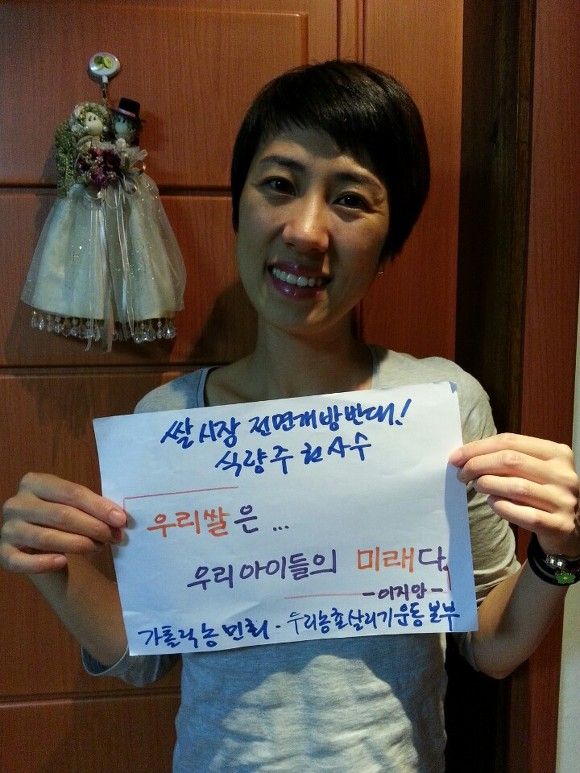 쌀시장 전면개방반대!
식량주권사수
우리쌀은...
우리아이들의 미래다
-이지안-
가톨릭농민회 - 우리농촌살리기운동본부